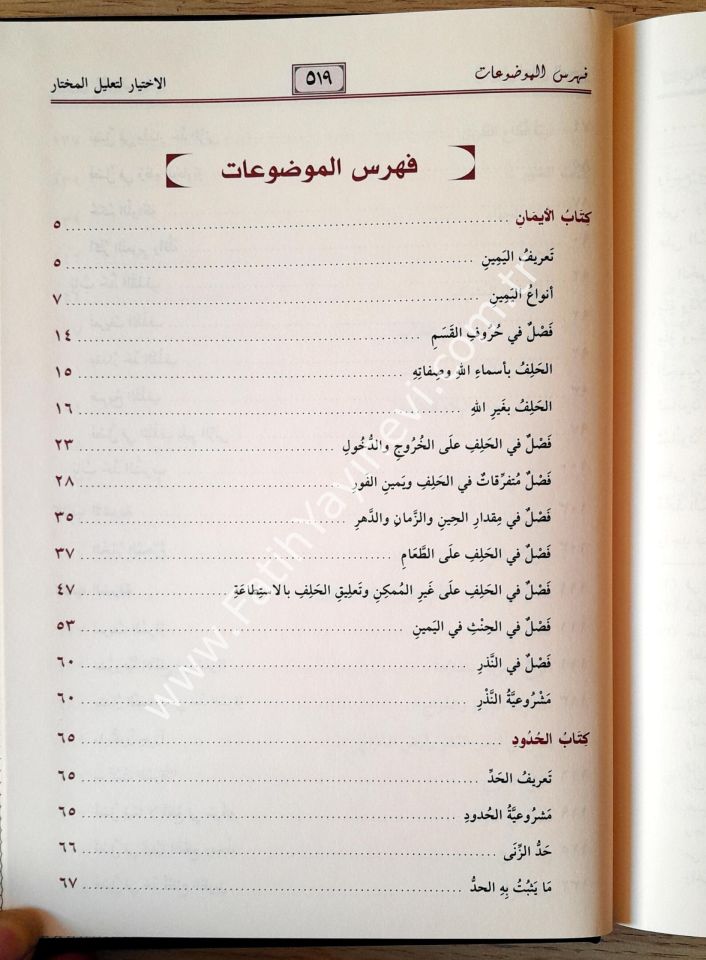 فهرس الموضوعات ٥١٩ الاختيار لتعليل المختار
فهرس الموضوعات
كِتَابُ الأيمَانِ ٥
تَعريفُ اليَمِينِ ٥
أنواعُ اليَمِينِ ٧
فَصْلٌ في حُرُوفِ القَسَمِ ١٤
الحَلِفُ بأسماءِ اللهِ وصِفاتِهِ ١٥
الحَلِفُ بغَيرِ اللهِ ١٦
فَصْلٌ في الحَلِفِ علَى الخُرُوجِ والدُّخُولِ ٢٣
فَصْلٌ مُتفرِّقاتٌ في الحَلِفِ ويَمينِ الفَورِ ٢٨
فَصْلٌ في مِقدارِ الحِينِ والزَّمانِ والدَّهرِ ٣٥
فَصْلٌ في الحَلِفِ علَى الطَّعَامِ ٣٧
فَصْلٌ في الحَلِفِ علَى غَيرِ المُمكِنِ وتَعليقِ الحَلِفِ بالاستِطاعَةِ ٤٧
فَصْلٌ في الحِنْثِ في اليَمينِ ٥٣
فَصْلٌ في النَّذرِ ٦٠
مَشْرُوعيَّةُ النَّذْرِ ٦٠
كِتَابُ الحُدُودِ ٦٥
تَعريفُ الحَدِّ ٦٥
مَشرُوعيَّةُ الحُدودِ ٦٥
حَدُّ الزِّنَى ٦٦
مَا يَثبُتُ بِهِ الحدُّ ٦٧
www.FatihYayinevi.com.tr